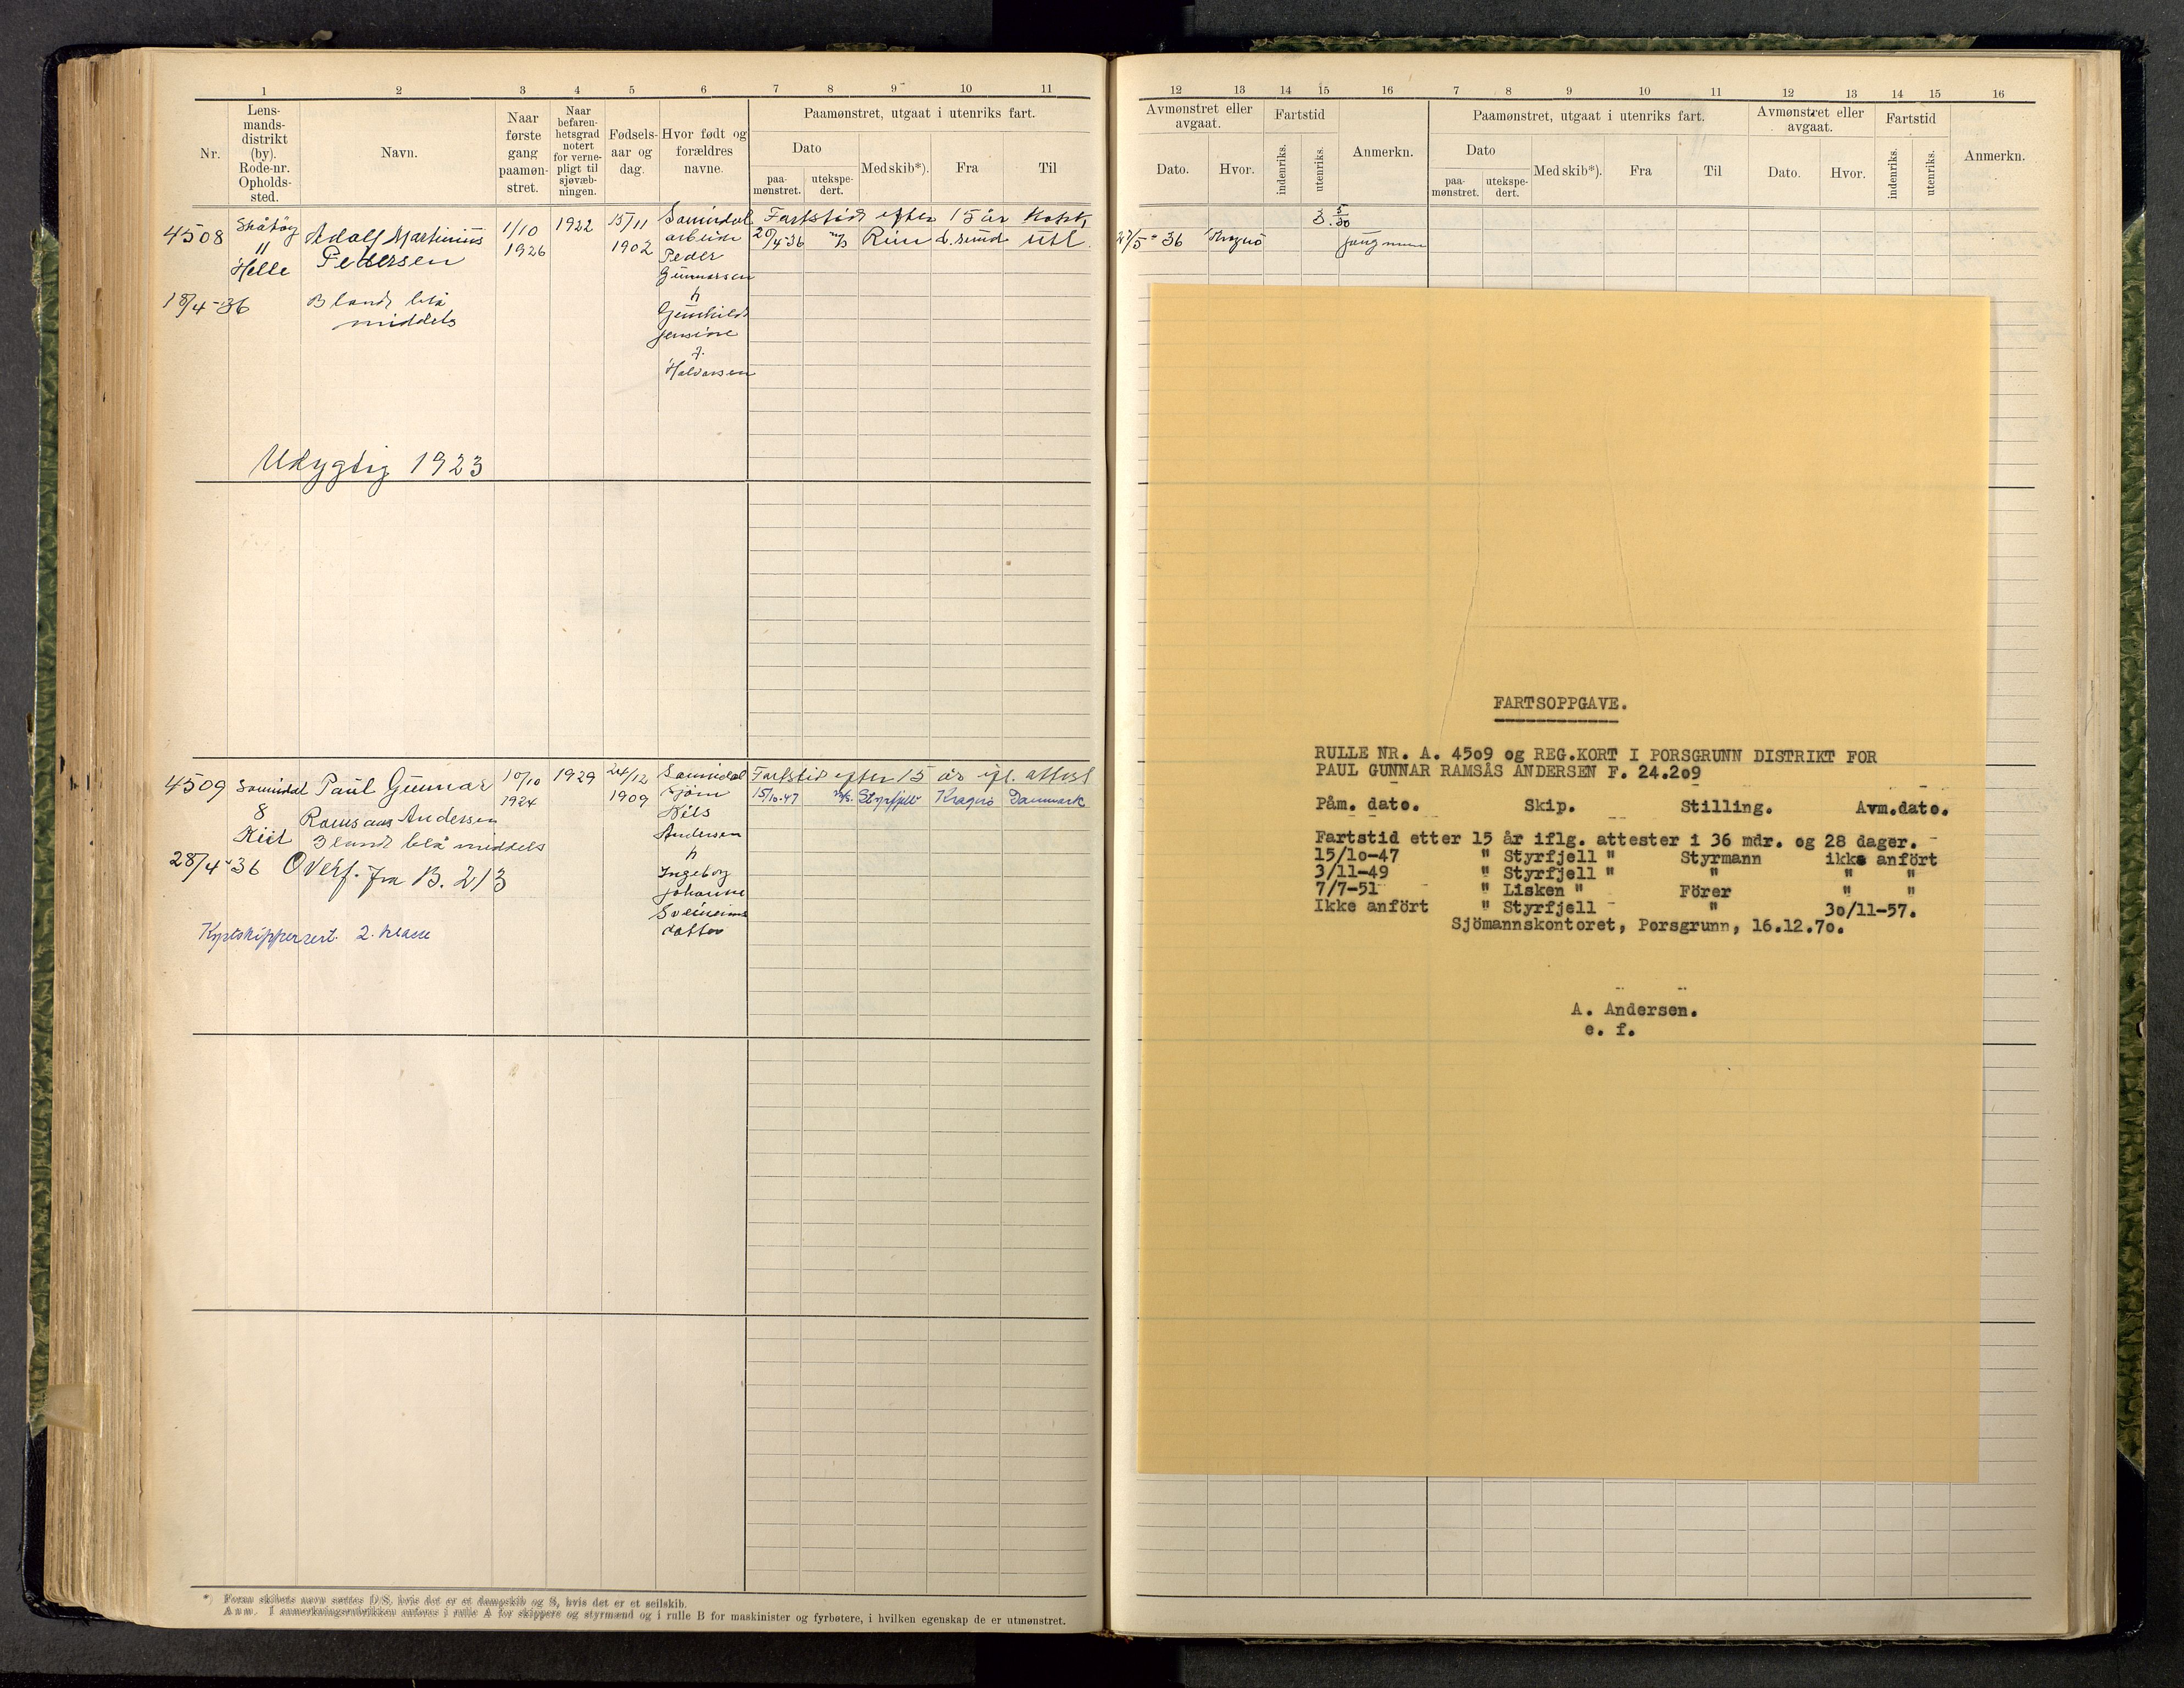 1 2 3 4 5 6 7 8 9 10 11
Nr.
Lens-
mands-
distrikt
(by).
Rode-nr.
Opholds-
sted.
Navn.
Naar
første
gang
paamøn-
stret.
Naar
befaren-
hetsgrad
notert
for verne-
pligt til
sjøvæb-
ningen.
Fødsels-
aar og
dag.
Hvor født og
forældres
navne.
Paamønstret, utgaat i utenriks fart.
Dato
paa-
mønstret.
utekspe-
dert.
Med skib*).
Fra
Til
4508
Skåtøy
"
Helle
18/4-36
Adolf Martinius
Pedersen
Blond blå
middels
1/10
1926
1922
15/11
1902
Sannidal
arbeider
Peder
Gunnarsen
h
Gunhild
Jensine
f.
Halvorsen
Fartstid efter 15 år
20/4-36 Rim utl.
Udygtig 1923
4509
Sannidal
8
Kiil
28/4-36
Paul Gunnar
Ramsaas Andersen
Blond blå middels
Overf. fra B. 213
Kystskippersert. 2. klasse
10/10
1924
1929
24/12
1909
Sannidal
Nils
Andersen
h
Ingeborg
Johanne
datter
Fartstid efter 15 år ifl. attest
15/10-47 m/s. Styrfjell Kragerø Danmark
*) Foran skibets navn sættes D/S, hvis det er et dampskib og S, hvis det er et seilskib.
Anm. I anmerkningsrubrikken anføres i rulle A for skippere og styrmænd og i rulle B for maskinister og fyrbøtere, i hvilken egenskap de er utmønstret.
12 13 14 15 16 7 8 9 10 11 12 13 14 15 16
Avmønstret eller
avgaat.
Dato.
Hvor.
Fartstid
indenriks.
utenriks.
Anmerkn.
Paamønstret, utgaat i utenriks fart.
Dato
paa-
mønstret.
utekspe-
dert.
Med skib*).
Fra
Til
Avmønstret eller
avgaat.
Dato.
Hvor.
Fartstid
indenriks.
utenriks.
Anmerkn.
3. 5/30
27/5-36 Kragerø jungmann
FARTSOPPGAVE.
RULLE NR. A. 45o9 og REG.KORT I PORSGRUNN DISTRIKT FOR
PAUL GUNNAR RAMSÅS ANDERSEN F. 24.2o9
Påm. dato. Skip. Stilling. Avm.dato.
Fartstid etter 15 år iflg. attester i 36 mdr. og 28 dager.
15/1o-47 " Styrfjell " Styrmann ikke anfört
3/11-49 " Styrfjell " " " "
7/7-51 " Lisken " Förer " "
Ikke anfört " Styrfjell " 3o/11-57.
Sjömannskontoret, Porsgrunn, 16.12.7o.
A. Andersen.
e. f.